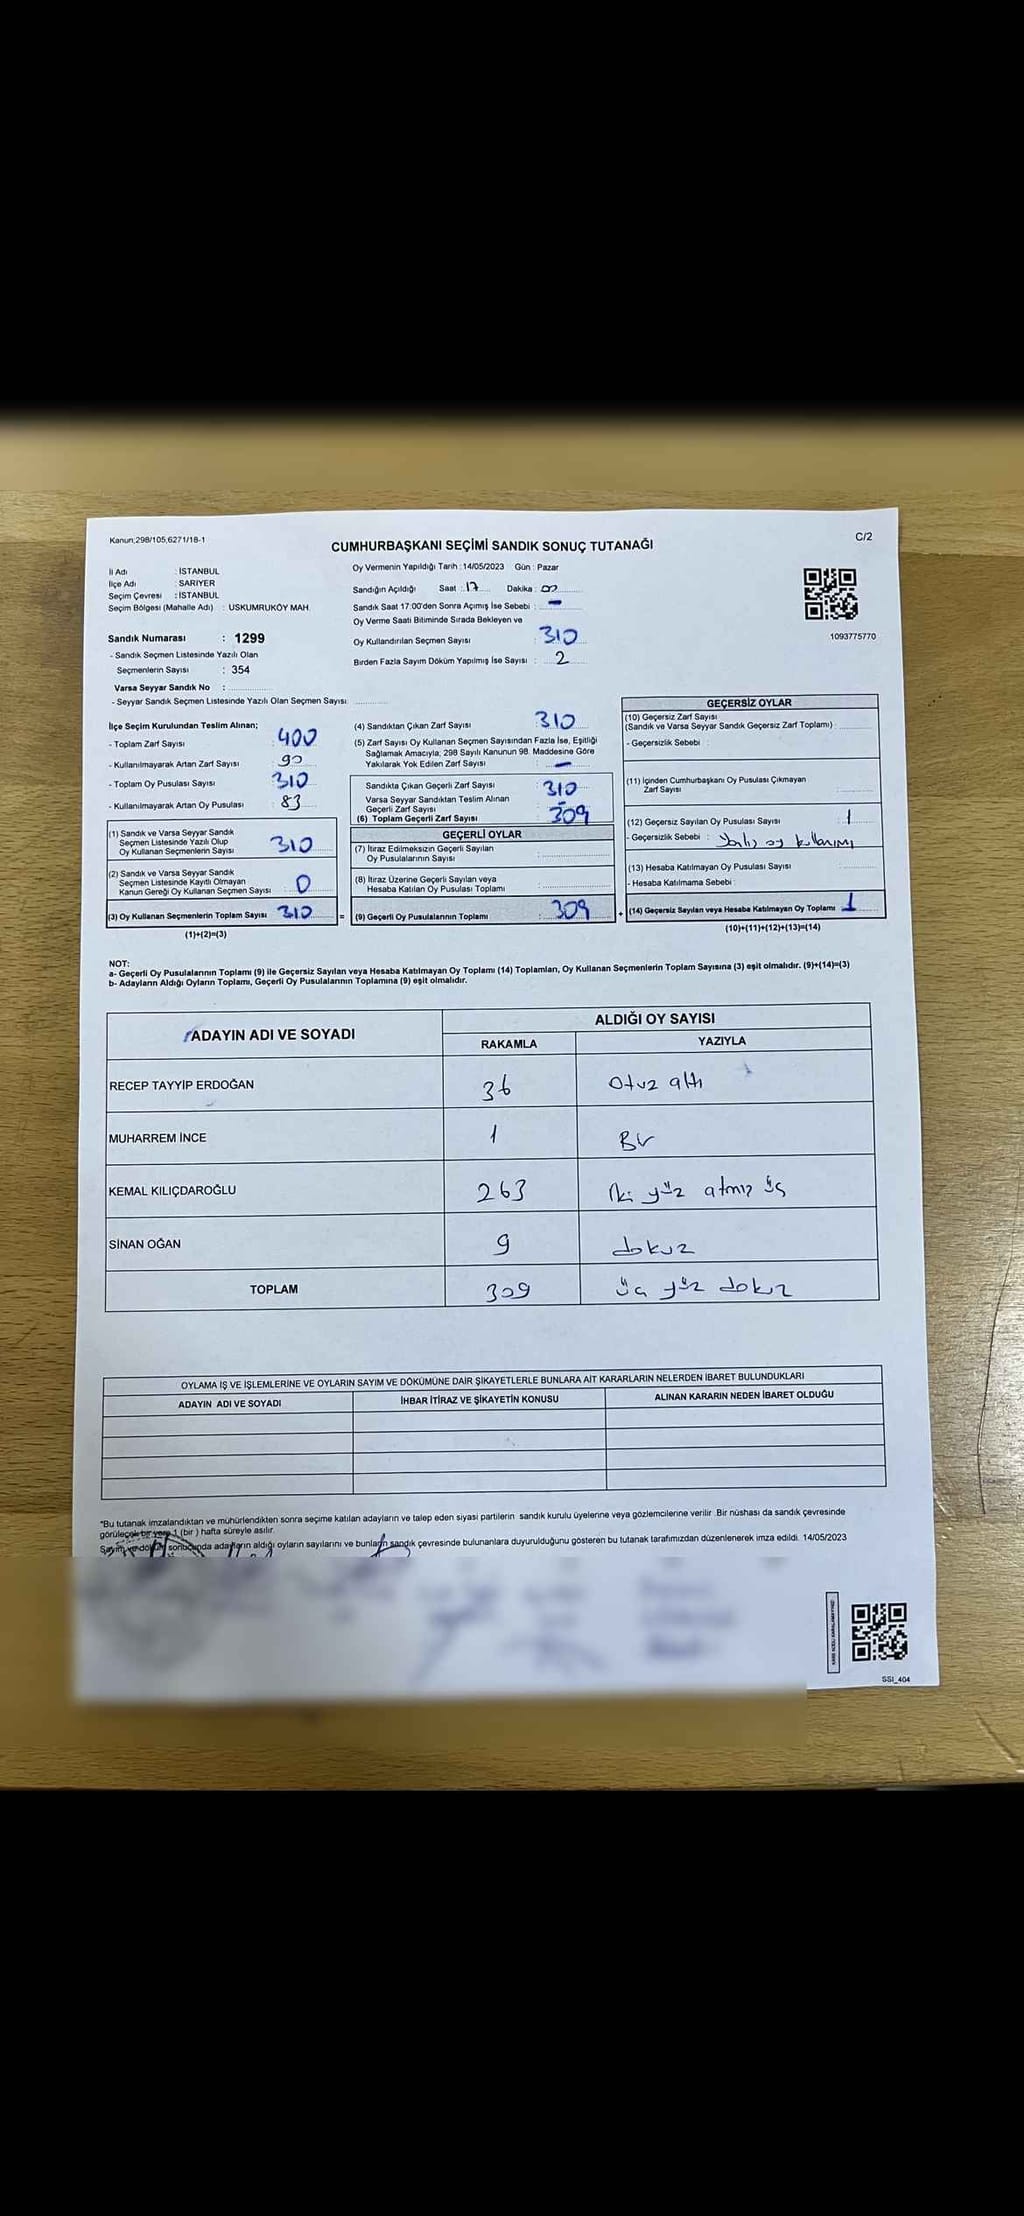 Kanun;298/105,6271/18-1
C/2
CUMHURBAŞKANI SEÇİMİ SANDIK SONUÇ TUTANAĞI
İl Adı : İSTANBUL
İlçe Adı : SARIYER
Seçim Çevresi : İSTANBUL
Seçim Bölgesi (Mahalle Adı) : USKUMRUKÖY MAH.
Oy Vermenin Yapıldığı Tarih : 14/05/2023 Gün : Pazar
Sandığın Açıldığı Saat : 17 Dakika : 00
Sandık Saat 17:00'den Sonra Açımış İse Sebebi : -
Oy Verme Saati Bitiminde Sırada Bekleyen ve
Oy Kullandırılan Seçmen Sayısı : 310
Birden Fazla Sayım Döküm Yapılmış İse Sayısı : 2
1093775770
Sandık Numarası : 1299
- Sandık Seçmen Listesinde Yazılı Olan
Seçmenlerin Sayısı : 354
Varsa Seyyar Sandık No :
- Seyyar Sandık Seçmen Listesinde Yazılı Olan Seçmen Sayısı:
İlçe Seçim Kurulundan Teslim Alınan;
- Toplam Zarf Sayısı : 400
- Kullanılmayarak Artan Zarf Sayısı : 90
- Toplam Oy Pusulası Sayısı : 310
- Kullanılmayarak Artan Oy Pusulası : 83
(1) Sandık ve Varsa Seyyar Sandık
Seçmen Listesinde Yazılı Olup
Oy Kullanan Seçmenlerin Sayısı : 310
(2) Sandık ve Varsa Seyyar Sandık
Seçmen Listesinde Kayıtlı Olmayan
Kanun Gereği Oy Kullanan Seçmen Sayısı : 0
(3) Oy Kullanan Seçmenlerin Toplam Sayısı : 310 =
(1)+(2)=(3)
(4) Sandıktan Çıkan Zarf Sayısı : 310
(5) Zarf Sayısı Oy Kullanan Seçmen Sayısından Fazla İse, Eşitliği
Sağlamak Amacıyla, 298 Sayılı Kanunun 98. Maddesine Göre
Yakılarak Yok Edilen Zarf Sayısı : -
Sandıkta Çıkan Geçerli Zarf Sayısı : 310
Varsa Seyyar Sandıktan Teslim Alınan
Geçerli Zarf Sayısı : -
(6) Toplam Geçerli Zarf Sayısı : 309
GEÇERLİ OYLAR
(7) İtiraz Edilmeksizin Geçerli Sayılan
Oy Pusulalarının Sayısı :
(8) İtiraz Üzerine Geçerli Sayılan veya
Hesaba Katılan Oy Pusulası Toplamı :
(9) Geçerli Oy Pusulalarının Toplamı : 309 +
GEÇERSİZ OYLAR
(10) Geçersiz Zarf Sayısı
(Sandık ve Varsa Seyyar Sandık Geçersiz Zarf Toplamı) :
- Geçersizlik Sebebi :
(11) İçinden Cumhurbaşkanı Oy Pusulası Çıkmayan
Zarf Sayısı :
(12) Geçersiz Sayılan Oy Pusulası Sayısı : 1
- Geçersizlik Sebebi : Yanlış oy kullanımı
(13) Hesaba Katılmayan Oy Pusulası Sayısı :
- Hesaba Katılmama Sebebi :
(14) Geçersiz Sayılan veya Hesaba Katılmayan Oy Toplamı : 1
(10)+(11)+(12)+(13)=(14)
NOT:
a- Geçerli Oy Pusulalarının Toplamı (9) ile Geçersiz Sayılan veya Hesaba Katılmayan Oy Toplamı (14) Toplamları, Oy Kullanan Seçmenlerin Toplam Sayısına (3) eşit olmalıdır. (9)+(14)=(3)
b- Adayların Aldığı Oyların Toplamı, Geçerli Oy Pusulalarının Toplamına (9) eşit olmalıdır.
ADAYIN ADI VE SOYADI
ALDIĞI OY SAYISI
RAKAMLA YAZIYLA
RECEP TAYYİP ERDOĞAN 36 Otuz altı
MUHARREM İNCE 1 Bir
KEMAL KILIÇDAROĞLU 263 iki yüz atmış üç
SİNAN OĞAN 9 dokuz
TOPLAM 309 üç yüz dokuz
OYLAMA İŞ VE İŞLEMLERİNE VE OYLARIN SAYIM VE DÖKÜMÜNE DAİR ŞİKAYETLERLE BUNLARA AİT KARARLARIN NELERDEN İBARET BULUNDUKLARI
ADAYIN ADI VE SOYADI İHBAR İTİRAZ VE ŞİKAYETİN KONUSU ALINAN KARARIN NEDEN İBARET OLDUĞU
*Bu tutanak imzalandıktan ve mühürlendikten sonra seçime katılan adayların ve talep eden siyasi partilerin sandık kurulu üyelerine veya gözlemcilerine verilir. Bir nüshası da sandık çevresinde
görülecek bir yere 1 (bir ) hafta süreyle asılır.
Sayım ve döküm sonucunda adayların aldığı oyların sayılarını ve bunların sandık çevresinde bulunanlara duyurulduğunu gösteren bu tutanak tarafımızdan düzenlenerek imza edildi. 14/05/2023
SSI_404